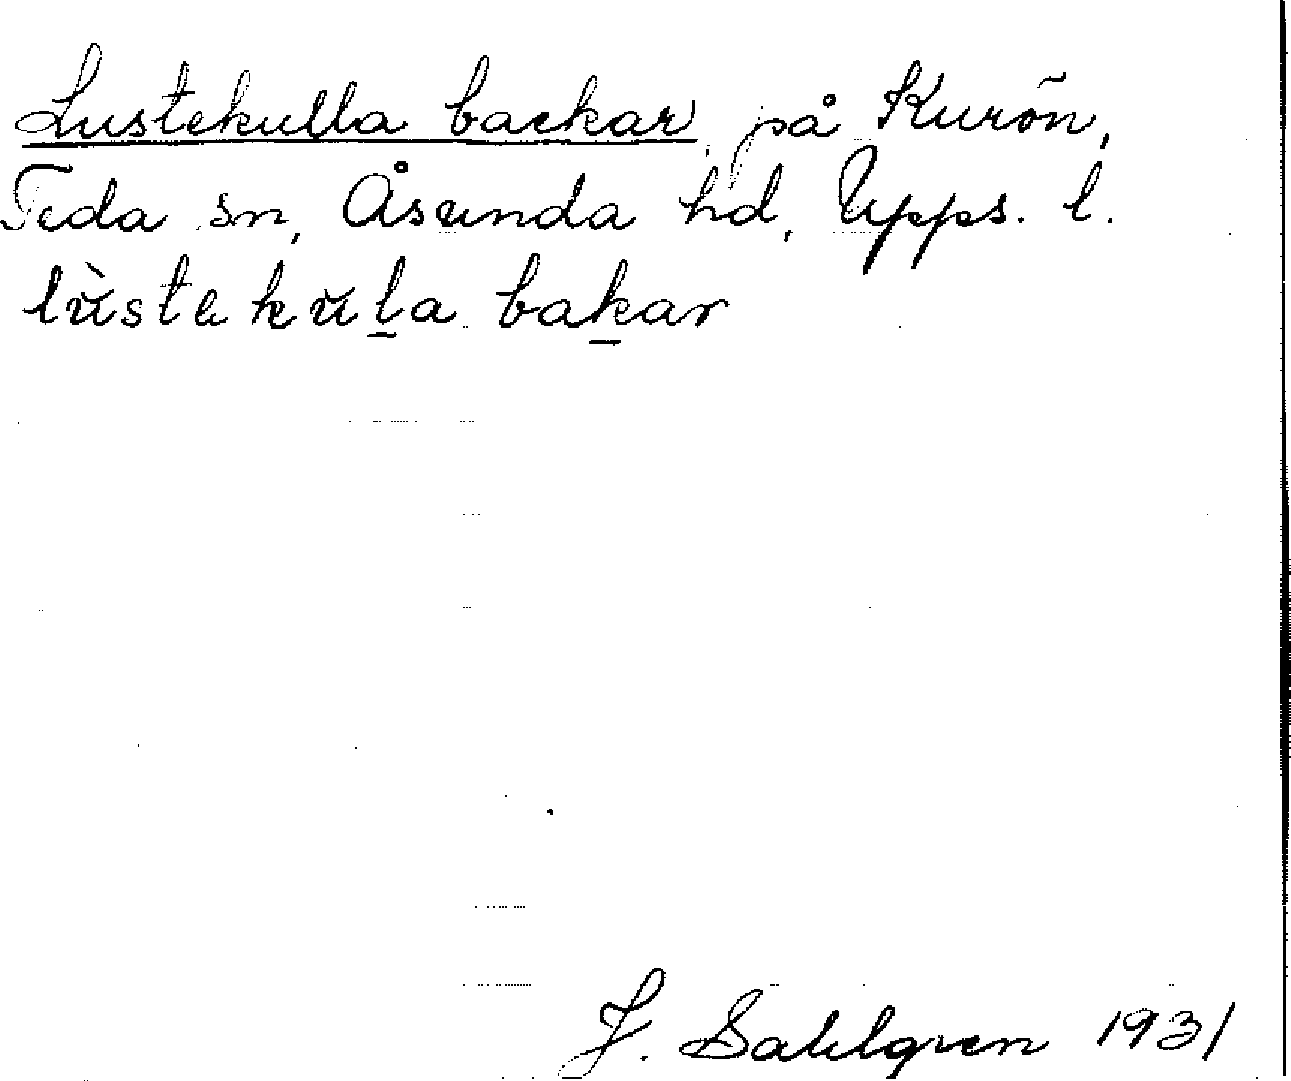 Lustekulla backar, på Kurön,
Teda sn, Åsunda hd, Upps. l.
lùstekul̲a bak̲ar
J. Sahlgren 1931